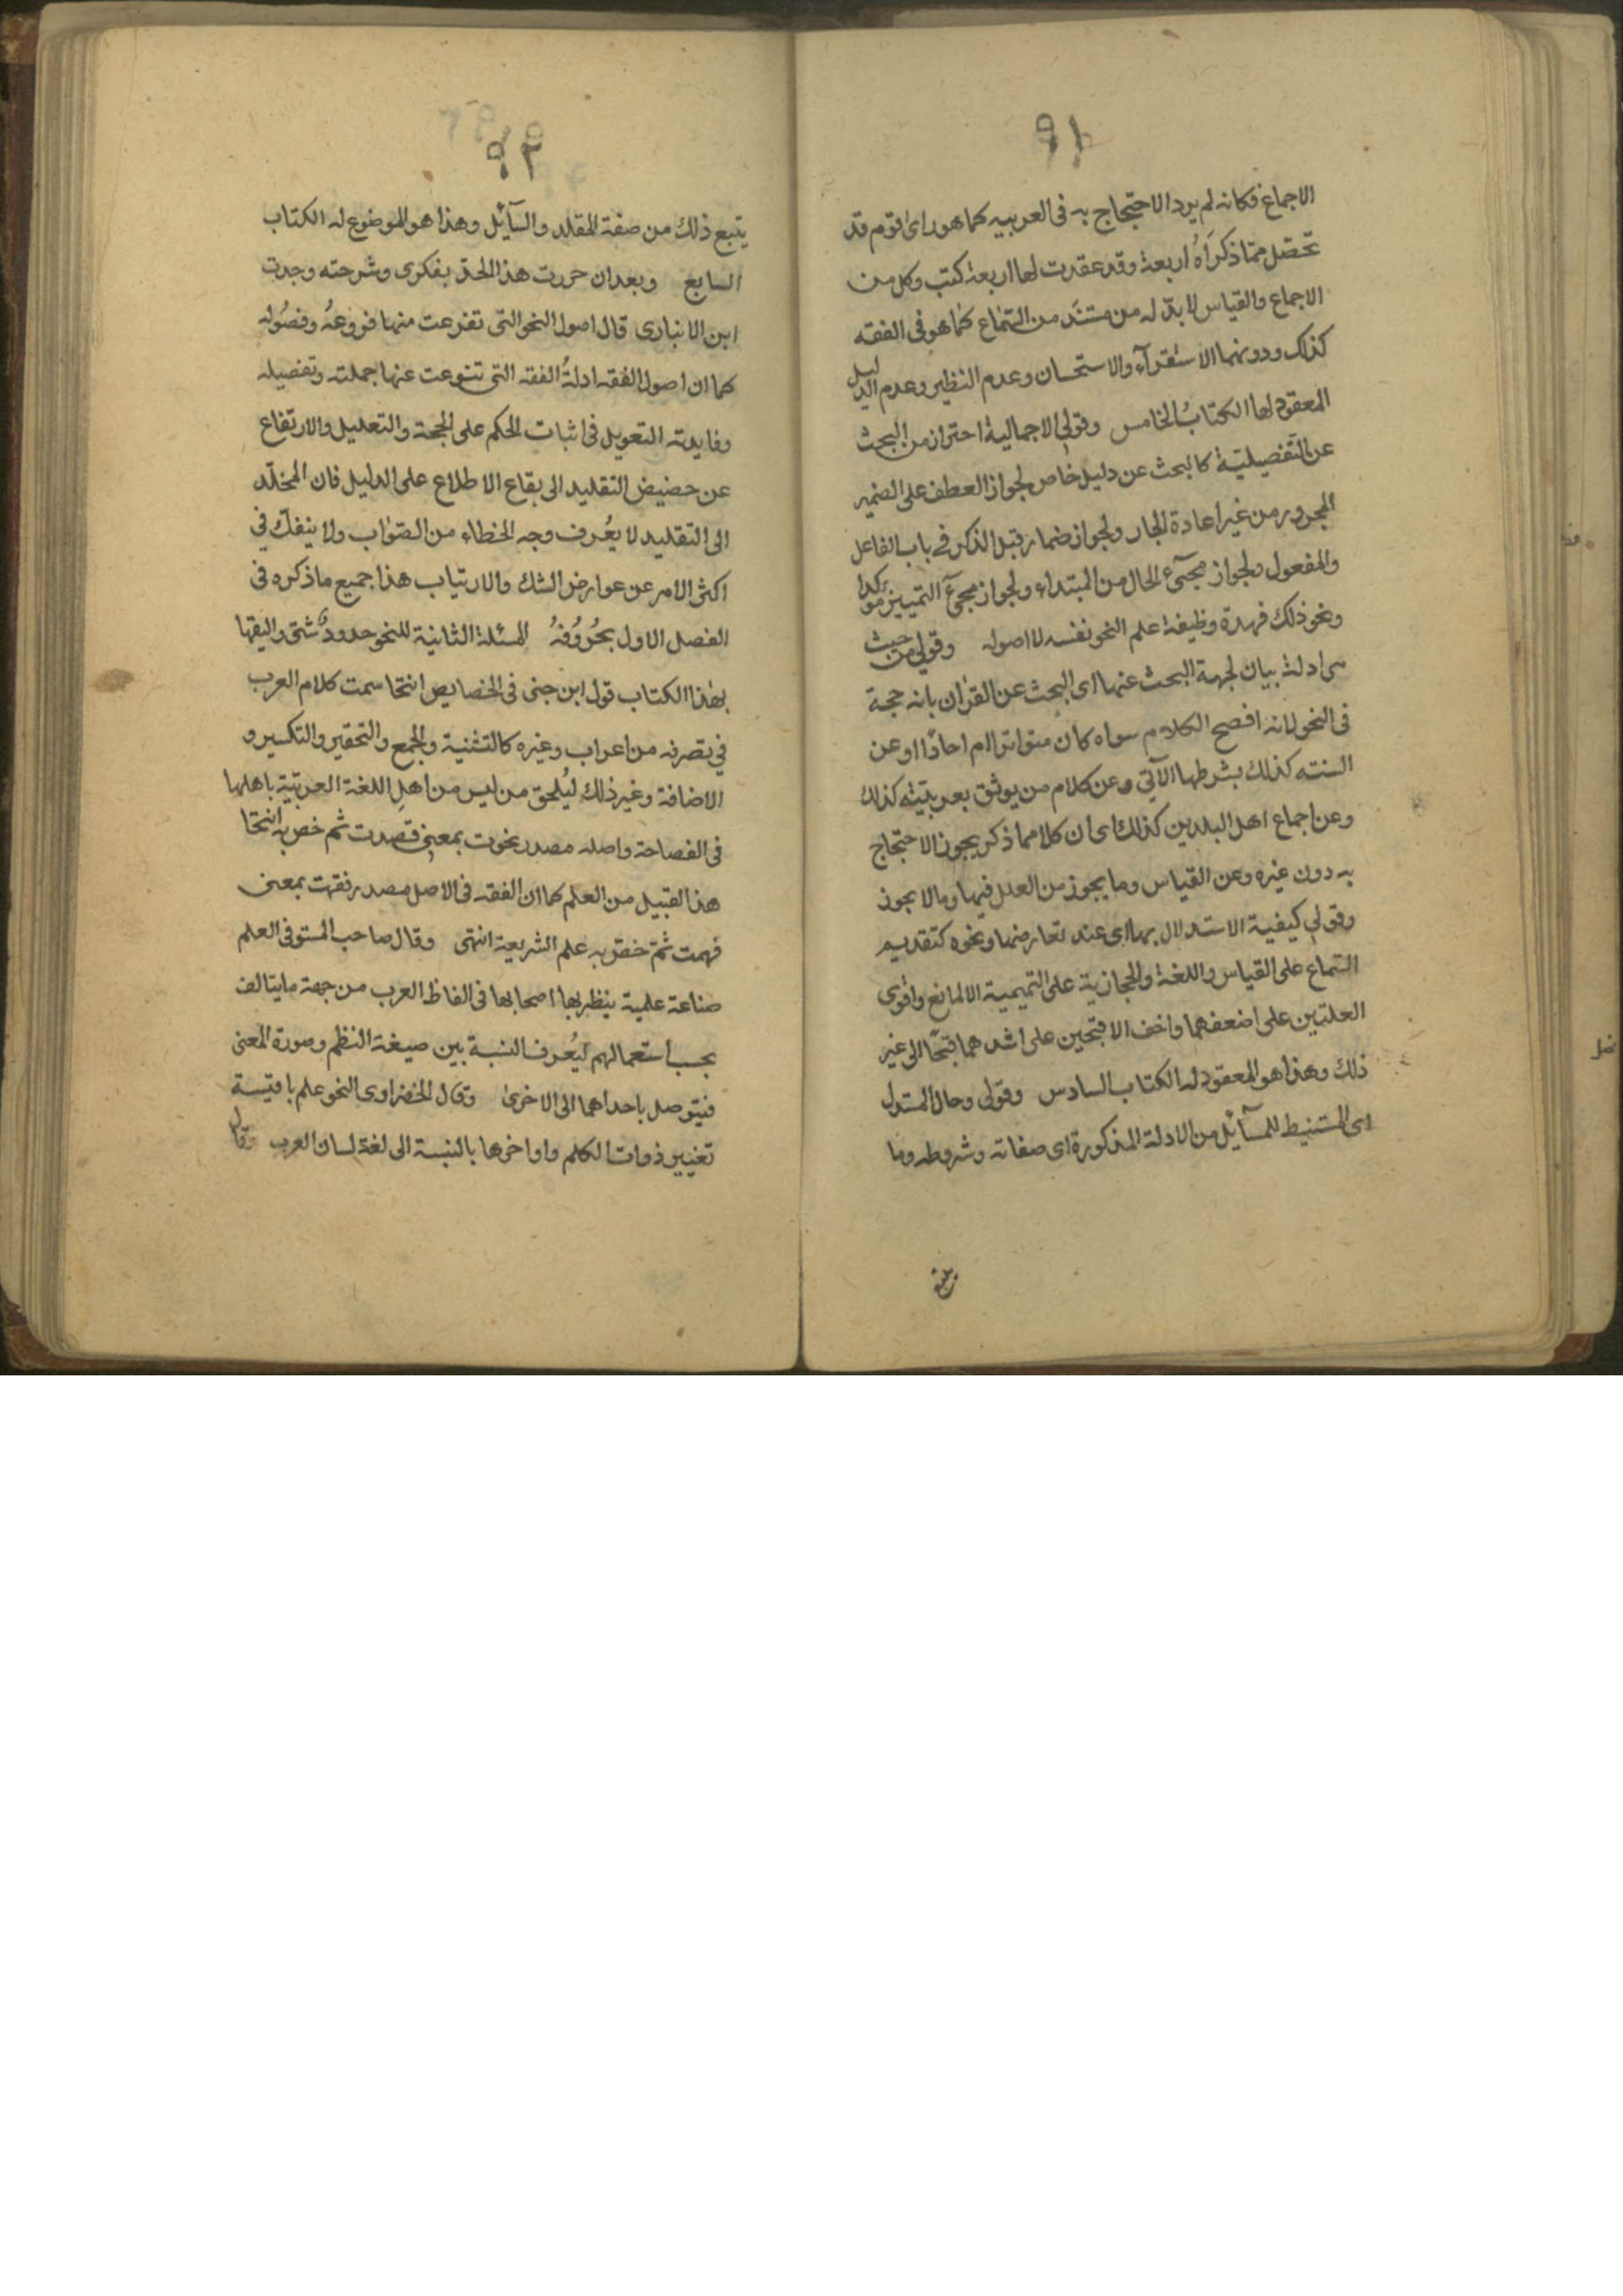 ٩١
الاجماع فكانه لم يرد الاحتجاج به فى العربيه كما هو راى قوم قد
تحصّل مما ذكرَاهُ اربعة وقد عقدت لها اربعة كتب وكل من
الاجماع والقياس لا بدّ له من مستَند من السّماع كما هو فى الفقه
كذلك ودونهما الاستقرآء والاستحسان وعدم النظير وعدم الدليل
المعقود لها الكتابُ الخامس وقولى الاجمالية احتراز من البحث
عن التّفصيليّة كالبحث عن دليل خاص لجواز العطف على الضمير
المجرور من غير اعادة الجار ولجواز ضمار قبل الذكر فى باب الفاعل
والمفعول ولجواز مجىٔ الحال من المبتداء ولجواز مجىٔ التمييز موكدا
ونحو ذلك فهذة وظيفة علم النحو نفسه لا اصوله وقولى من حيث
هى ادلة بيان لجهة البحث عنها اى البحث عن القرٰان بانه حجة
فى النحو لانه افصح الكلام سواه كان متواترا ام احادًا او عن
السنته كذلك بشرطها الآتي وعن كلام من يوثق بعربيّته كذلك
وعن اجماع اهل البلدين كذلك اى ان كلا مما ذكر يجوز الاحتجاج
به دون غيره وعن القياس وما يجوز من العلل فيها وما لا يجوز
وقولى كيفية الاستدلال بها اى عند تعارضها ونحوه كتقديم
السّماع على القياس واللغة والحجازية على التميمية الا لمانع واقوى
العلتين على اضعفهما واخف الاقبحين على اشدهما قبحًا الى غير
ذلك وهذا هو المعقود له الكتاب السادس وقولى وحال المستدل
اى المستنبط للمسآئل من الادلة المذكورة اى صفاته وشروطه وما
يتبع
٩٢
يتبع ذلك من صفة المقلد والسآئل وهذا هو الموضوع له الكتاب
السابع وبعد ان حررت هذا الحدّ بفكرى وشرحته وجدت
ابن الانبارى قال اصول النحو التى تفرعت منها فروعهُ وفصُوله
كما ان اصول الفقه ادلةُ الفقه التى تنوعت عنها جملته وتفصيله
وفايدته التعويل فى اثبات الحكم على الحجة والتعليل والارتفاع
عن حضيض التقليد الى بقاع الاطلاع على الدليل فان المخلّد
الى التقليد لا يعُرف وجه الخطاء من الصّوٰاب ولا ينفكّ فى
اكثر الامر عن عوارض الشك والارتياب هذا جميع ما ذكره فى
الفصل الاول بحُرُوُفهُ المسئلة الثانية للنحو حدودٌ شتى واليقها
بهٰذا الكتاب قول ابن جنى فى الخصايص انتحا سمت كلام العرب
في تصرفه من اعراب وغيره كالتثنية والجمع والتحقير والتكسير و
الاضافة وغير ذلك ليُلحق من ليس من اهل اللغة العربيّة باهلها
فى الفصاحة واصله مصدر نحوت بمعنى قصدت ثم خص به انتحا
هذا القبيل من العلم كما ان الفقه فى الاصل مصدر فقهت بمعنى
فهمت ثمّ خصّ به علم الشريعة انتهى وقال صاحب المستوفى العلم
صناعة علمية ينظر بها اصحابها فى الفاظ العرب من جهة ما يتالف
بحسب استعمالهم ليُعرف النسبة بين صيغة النظم وصورة المعنى
فيتوصل باحداهما الى الاخرىٰ وقال الخضراوى النحو علم باقيسة
تغيير ذوات الكلم واواخرها بالنسبة الى لغة لسان العرب وقال